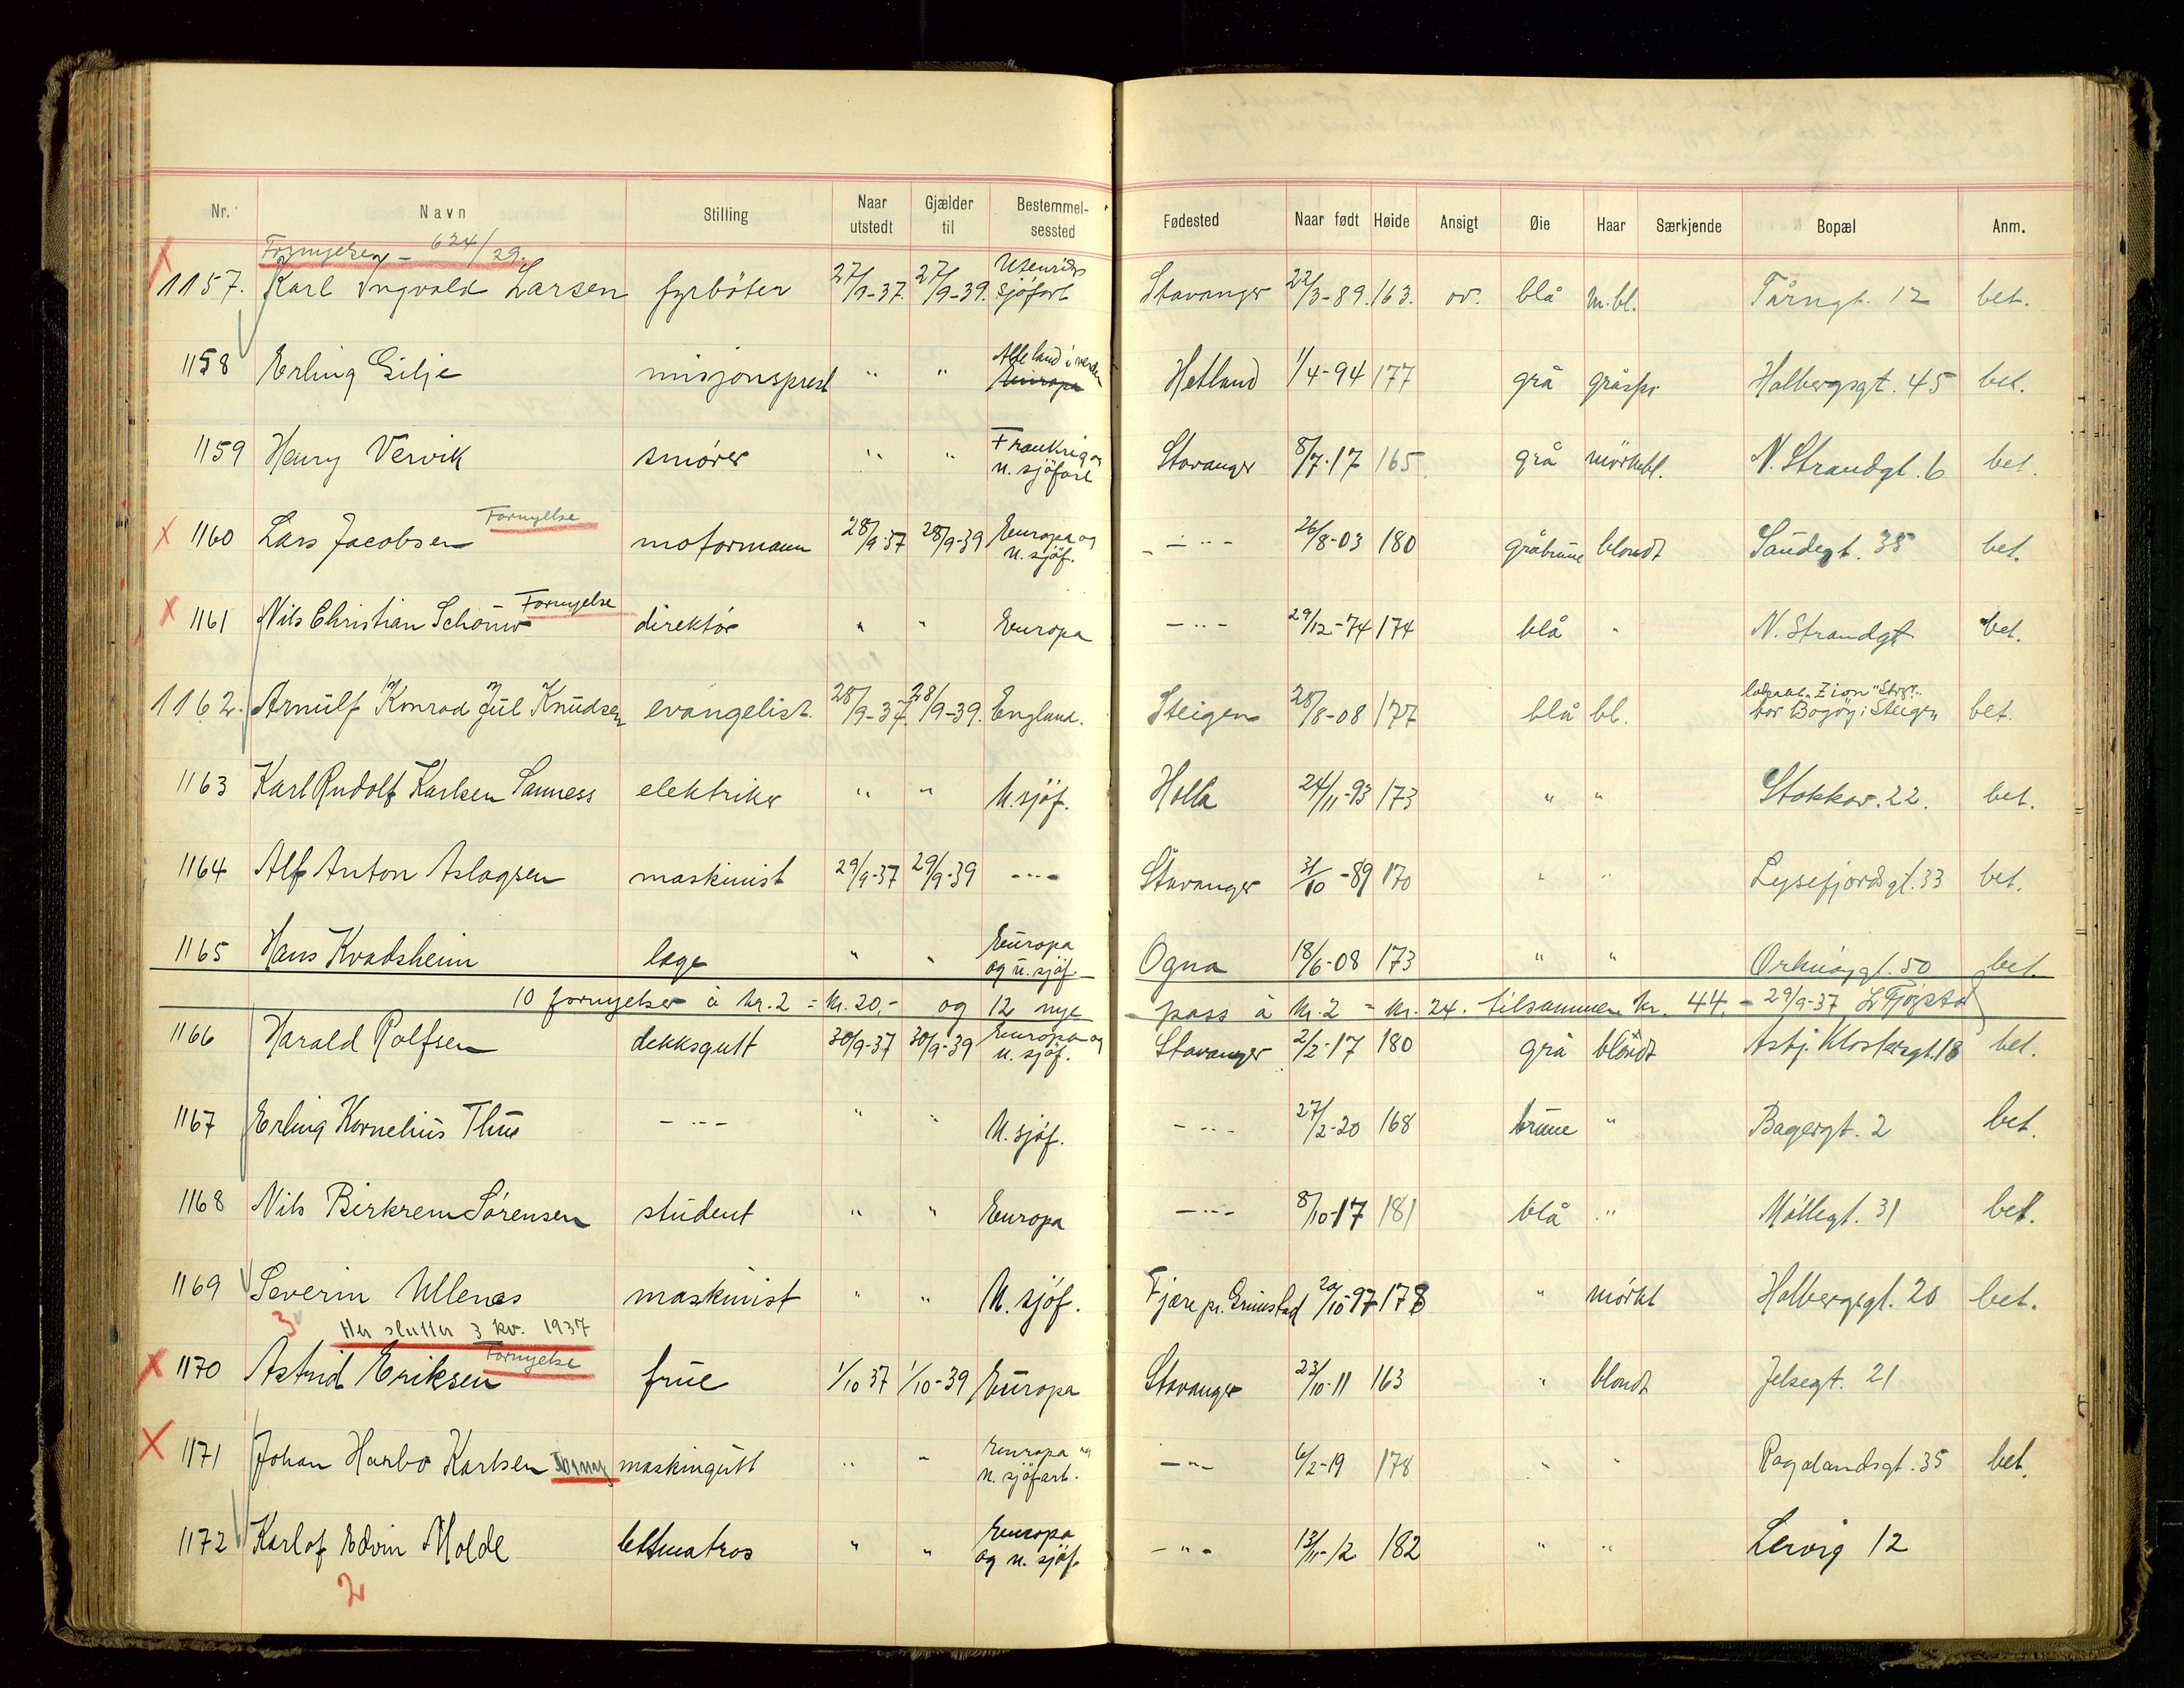 Nr. Navn Stilling Naar utstedt Gjælder til Bestemmelsessted Fødested Naar født Høide Ansigt Øie Haar Særkjende Bopæl Anm.
Fornyelse - 624/29.
1157. Karl Ingvald Larsen fyrböter 27/9-37. 27/9-39. Utenriks sjöfart Stavanger 22/3-89. 163. ov. blå m.bl. Tårngt. 12 bet.
1158 Erling Gilje misjonsprest " " Alle land i verden Europa Hetland 1/4-94 177 grå gråspr. Holbergsgt. 45 bet.
1159 Henry Vervik smörer " " Frankrig og u. sjöfart Stavanger 8/7-17 165 grå mörkbl. N. Strandgt. 6 bet.
Fornyelse
1160 Lars Jacobsen motormann 28/9-37 28/9-39 Europa og u. sjöf. - " - 26/8-03 180 gråbrune blondt Sandegt. 35 bet.
Fornyelse
1161 Nils Christian direktör " " Europa - " - 29/12-74 174 blå " N. Strandgt bet.
1162. Arnulf Konrad Jul Knudsen evangelist. 28/9-37. 28/9-39. England. Steigen 28/8-08 177 blå bl. "Zion" Stvgr. bor Bogöy i Steigen bet.
1163 Karl Rudolf Karlsen Sanness elektriker " " U. sjöf. Holla 24/11-93 173 " " Stokkav. 22. bet.
1164 Alf Anton Aslagsen maskinist 29/9-37 29/9-39 - " - Stavanger 31/10-89 170 " " Lysefjordsgt. 33 bet.
1165 Hans Kvadsheim lege " " Europa og u. sjöf. Ogna 18/6-08 173 " " Orknöygt. 50 bet.
10 fornyelser à kr. 2 = kr. 20,- og 12 nye pass à kr. 2 = kr. 24. tilsammen kr. 44.- 29/9-37
1166 Harald Rolfsen dekksgutt 30/9-37 30/9-39 Europa og u. sjöf. Stavanger 2/2-17 180 grå blondt Asbj. Klostersgt. 18 bet.
1167 Erling Kornelius Thu - " - " " U. sjöf. - " - 27/2-20 168 brune " Bagergt. 2 bet.
1168 Nils Birkrem Sörensen student " " Europa - " - 8/10-17 181 blå " Möllegt. 31 bet.
1169 Severin Ullenes maskinist " " U. sjöf. Fjære pr. Grimstad 20/10-97 178 " mörkt Holbergsgt. 20 bet.
3 Her slutter 3 kv. 1937
Fornyelse
1170 Astrid Eriksen frue 1/10 37 1/10-39 Europa Stavanger 23/10-11 163 " blondt Jelsegt. 21
1171 Johan Harbo Karlsen maskingutt " " Europa og u. sjöfart. - " - 6/2-19 178 " " Rogalandsgt. 35 bet.
1172 Karlof Edvin Molde lettmatros " " Europa og u. sjöf. - " - 13/11-12 182 " " Lervig 12
2